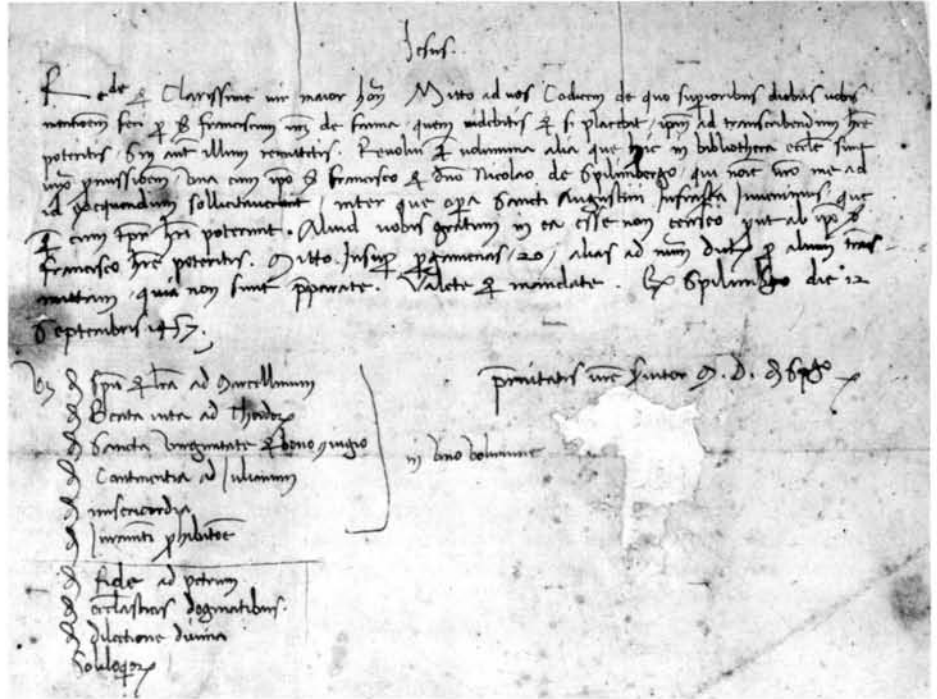 Jesus.
R.de & Clarissime vir maior hon. Mitto ad vos Codicem de quo superioribus diebus vobis
mentionem feci per S. Franciscum de fama quem videbitis & si placebit, ipm ad transcribendum hre
poteritis, Sin aut illum remittetis. Revolvi & volumina alia que hic in bibliotheca ecclie sunt
iuxta promissionem una cum ipo S. Francisco & dno Nicolao de Spilimbergo, qui noie vro me ad
id exequendum sollicitaverunt, inter que opa Sancti Augustini Infrascripta Invenimus, que
& cum tpre hri poterunt. Aliud vobis gratum in ea esse non censeo put ab ipo S.
Francisco hre poteritis. Mitto Insup pergamenas /20/ alias ad num per alium trans
mittam, quia non sunt pparate. Valete & mandate. Ex Spilimbergo die 12
Septembris 1457.
pernitatis vre S. D.
De Spu & lra ad Marcellinum
De Beata vita ad Theodor
De Sancta virginitate & bono coniugio
De Continentia ad Iulianum
in uno volumine
De misericordia
De Iuramenti phibitoe
De fide ad petrum
De eccliasticis dogmatibus.
De dilectione divina
Soliloquior